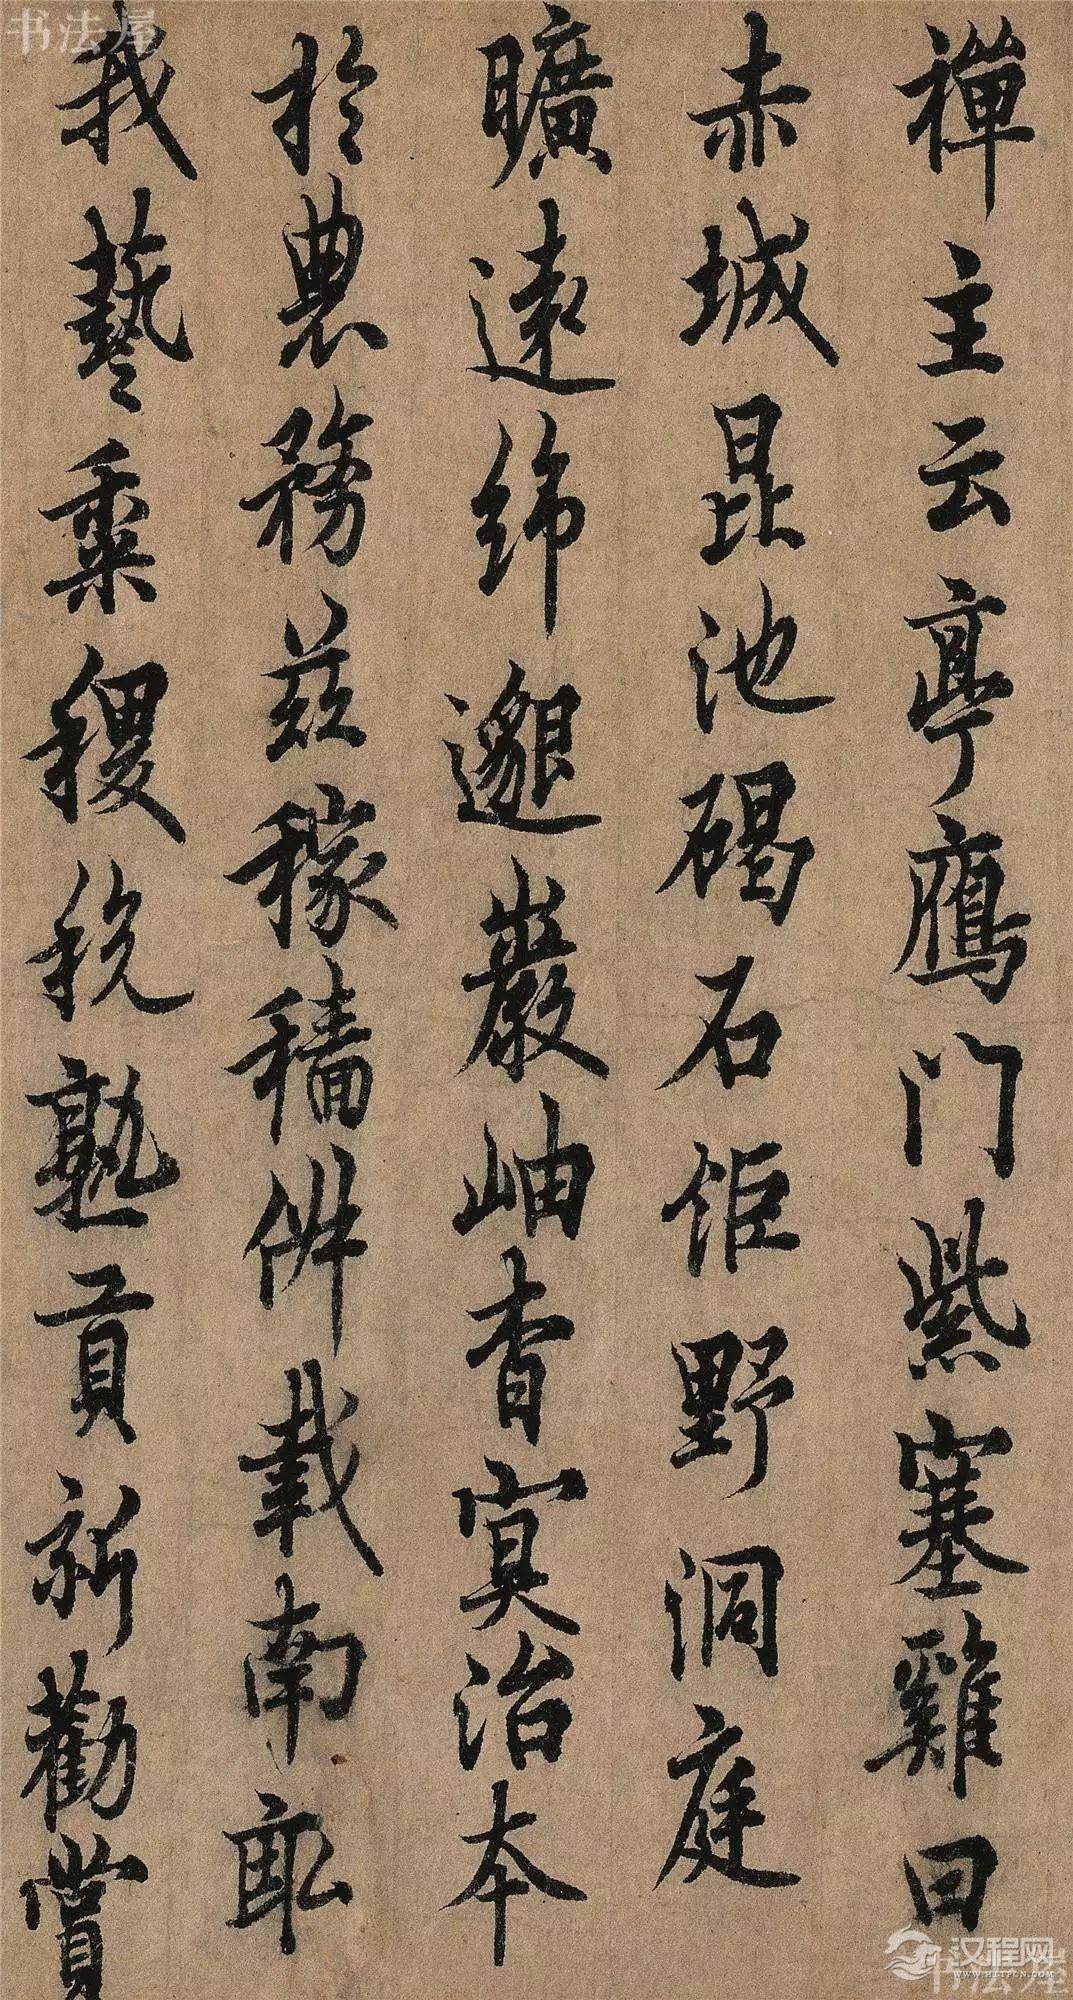 禅主云亭鴈门紫塞雞田
赤城昆池碣石钜野洞庭
曠遠綿邈巖岫杳冥治本
於農務兹稼穡俶載南畝
我藝黍稷稅熟貢新勸賞
书法屋
汉程网
书法屋